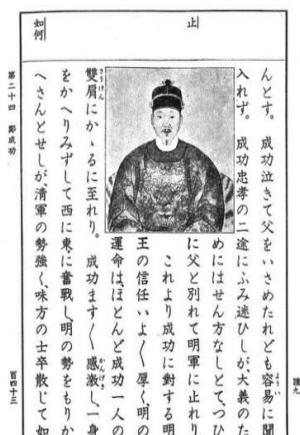 止
如何
んとす。成功泣きて父をいさめたれども容易に聞
入れず。成功忠孝の二途にふみ迷ひしが、大義のた
めにはせん方なしとて、つひ
に父と別れて明軍に止れり
これより成功に對する明
王の信任いよ〱厚く、明の
運命は、ほとんど成功一人の
雙肩にかゝるに至れり。成功ます〱感激し、一身
をかへりみずして西に東に奮戰し、明の勢をもりか
へさんとせしが、清軍の勢強く、味方の士卒散じて如
第二十四 鄭成功
百四十三
讀九
よう
さうけん
かんげき